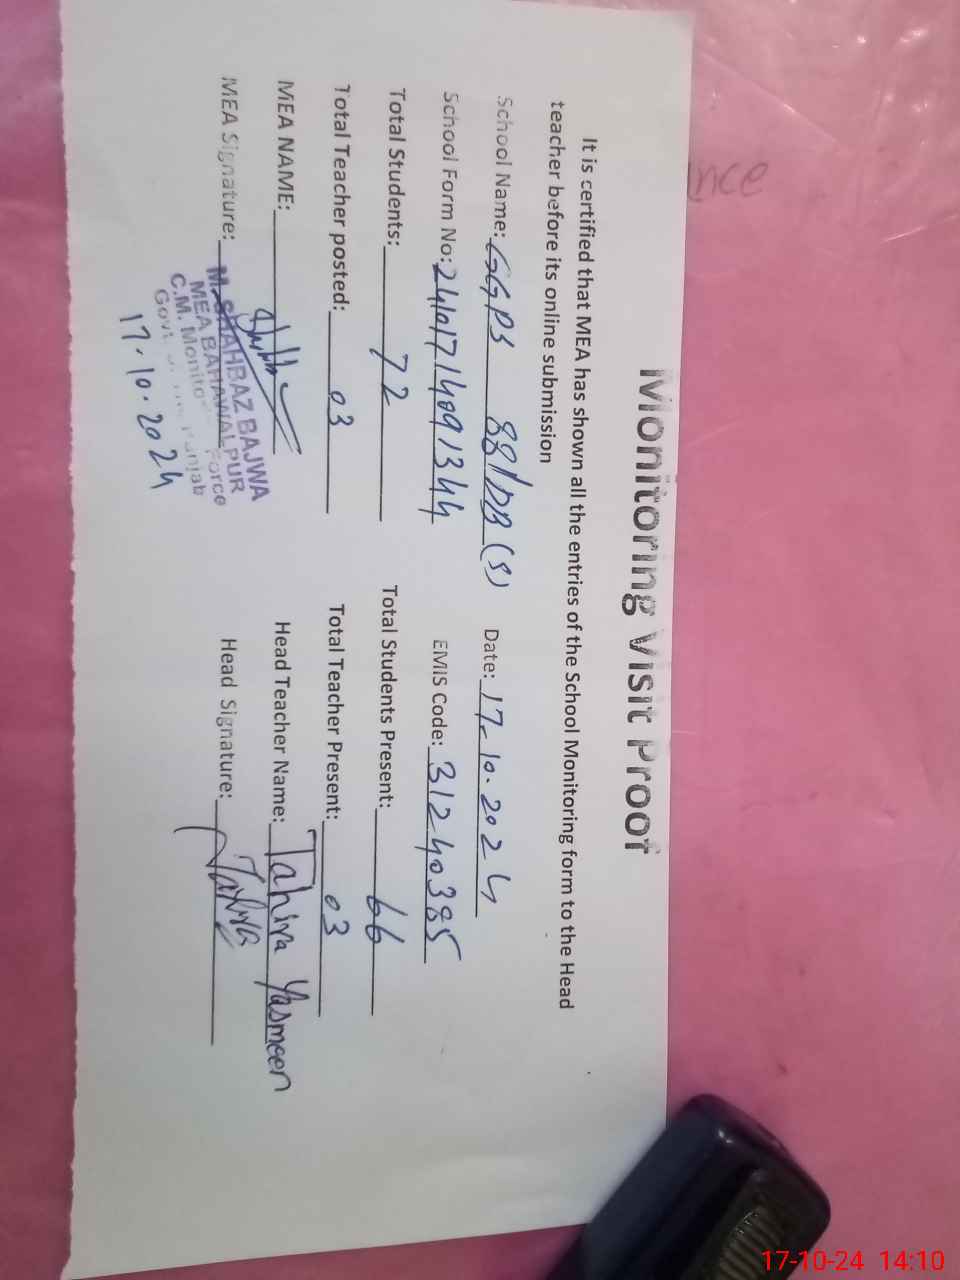 nce
Monitoring Visit Proof
It is certified that MEA has shown all the entries of the School Monitoring form to the Head
teacher before its online submission
School Name: GGPS 88/DB (S) Date: 17-10.2024
School Form No: 24101714091344 EMIS Code: 31240385
Total Students: 72 Total Students Present: 66
Total Teacher posted: 03 Total Teacher Present: 03
MEA NAME: Head Teacher Name: Tahira Yasmeen
MEA Signature: Head Signature: Tahira
M. SHAHBAZ BAJWA
MEA BAHAWALPUR
C.M. Monitoring Force
Govt of the Punjab
17.10.2024
17-10-24 14:10